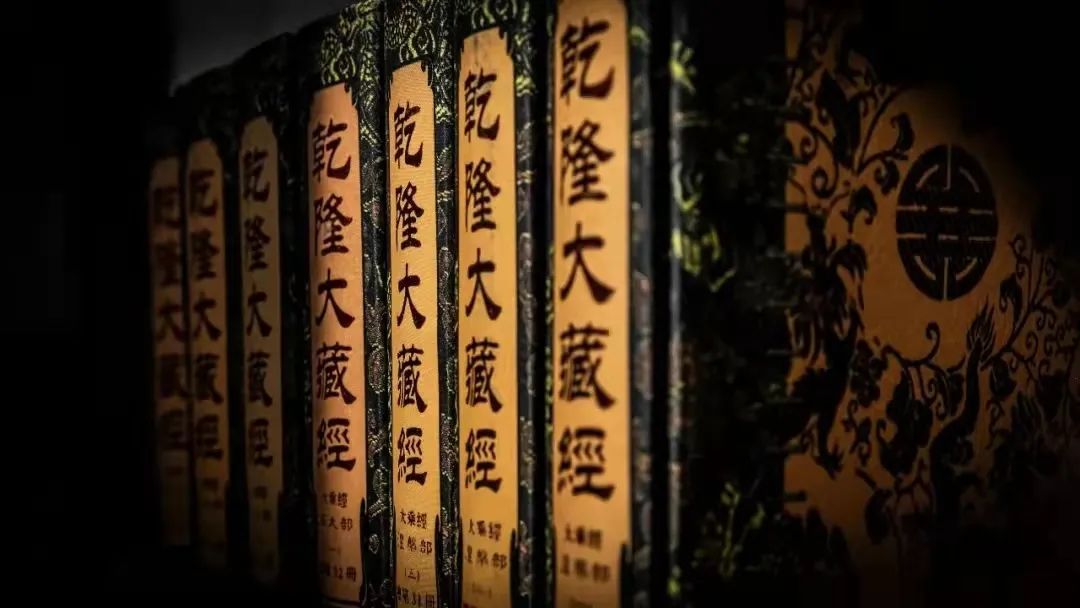 乾隆大藏經
乾隆大藏經
乾隆大藏經
乾隆大藏經
大乘經
乾隆大藏經
大乘經
涅槃部
(三)
乾隆大藏經
大乘經
涅槃部
乾隆大藏經
大乘經
涅槃部